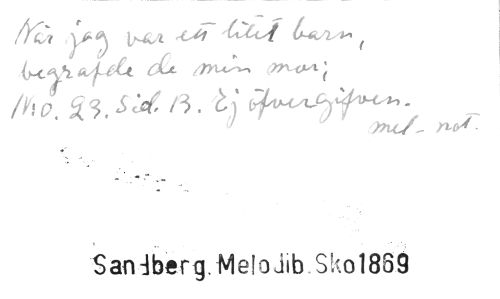 När jag var ett litet barn,
begrafde de min mor;
N:o. 23. Sid. 13. Ej öfvergifven.
mel-not.
Sandberg. Melodib. Sko1869